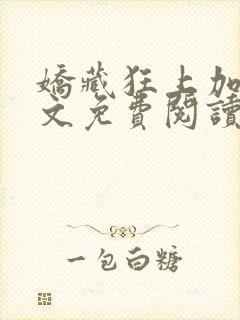 嬌藏狂上加
文免費閱讀
一包白糖